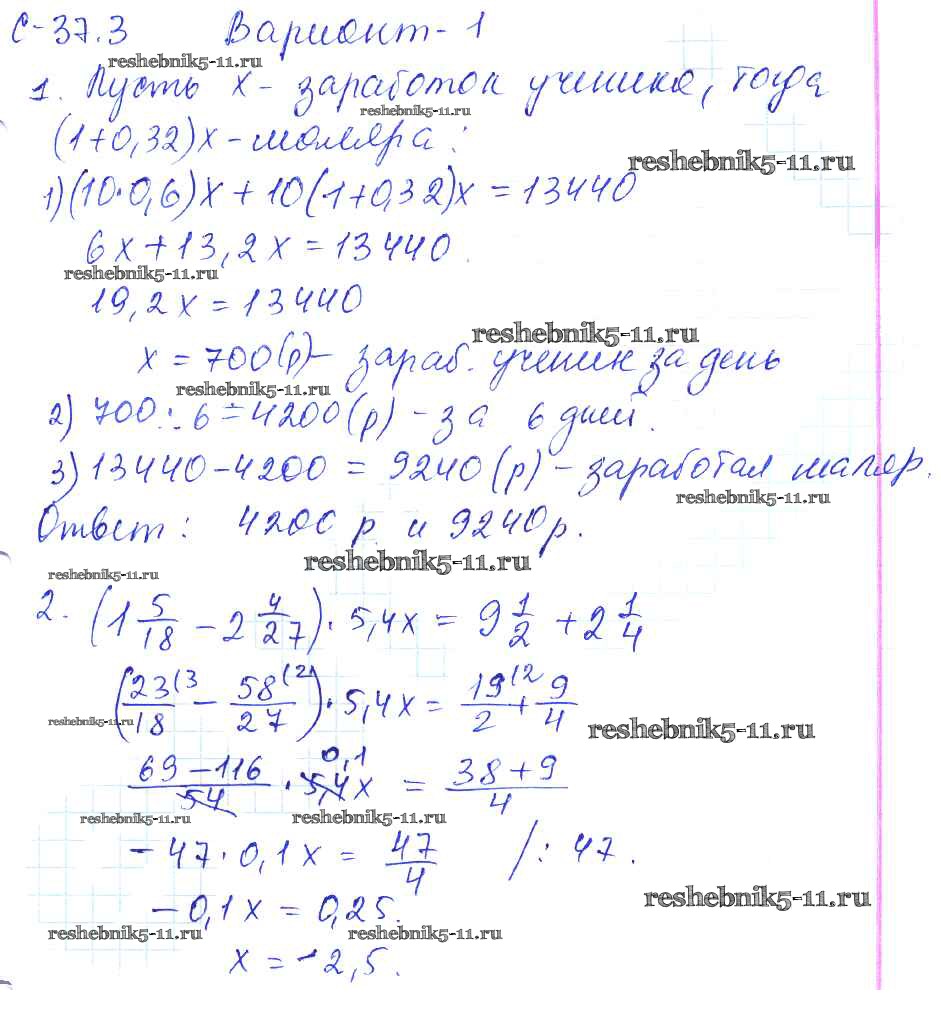 С-37.3 Вариант-1
reshebnik5-11.ru
1. Пусть x - заработок ученика, тогда
reshebnik5-11.ru
(1+0,32)x - маляра:
reshebnik5-11.ru
1) (10·0,6)x + 10(1+0,32)x = 13440
6x + 13,2x = 13440
reshebnik5-11.ru
19,2x = 13440
reshebnik5-11.ru
x = 700(р) - зараб. ученик за день
reshebnik5-11.ru
2) 700 : 6 = 4200(р) - за 6 дней.
3) 13440 - 4200 = 9240(р) - заработал маляр.
reshebnik5-11.ru
Ответ: 4200 р и 9240 р.
reshebnik5-11.ru
reshebnik5-11.ru
2. (1 5/18 - 2 4/27) · 5,4x = 9 1/2 + 2 1/4
(23(3/18 - 58(2/27) · 5,4x = 19(2/2 + 9/4
reshebnik5-11.ru
reshebnik5-11.ru
0,1
69-116/54 · 5,4x = 38+9/4
reshebnik5-11.ru reshebnik5-11.ru
-47 · 0,1x = 47/4 /: 47.
reshebnik5-11.ru
-0,1x = 0,25.
reshebnik5-11.ru reshebnik5-11.ru
x = -2,5.